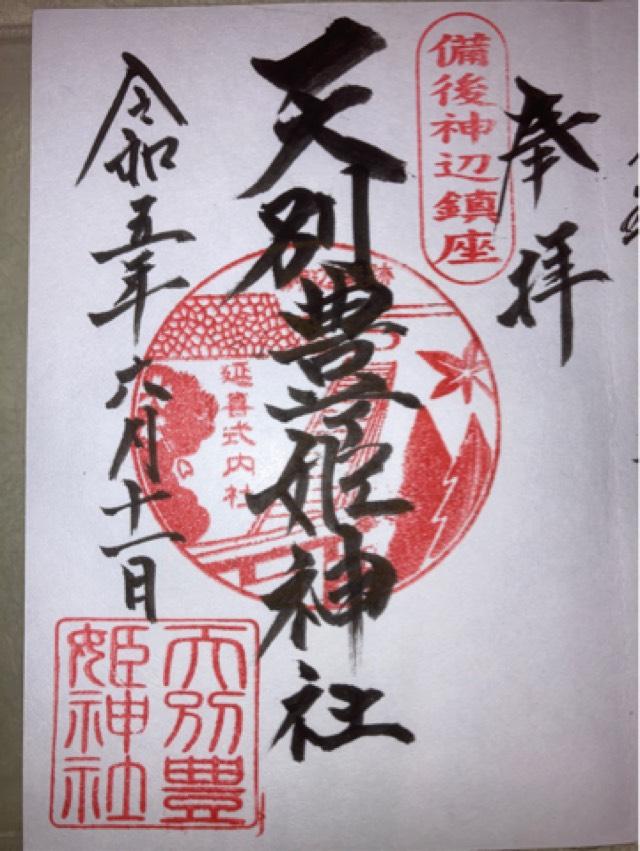 奉拝
備後神辺鎮座
天別豊姫神社
延喜式内社
令和五年六月十一日
天別豊
姫神社